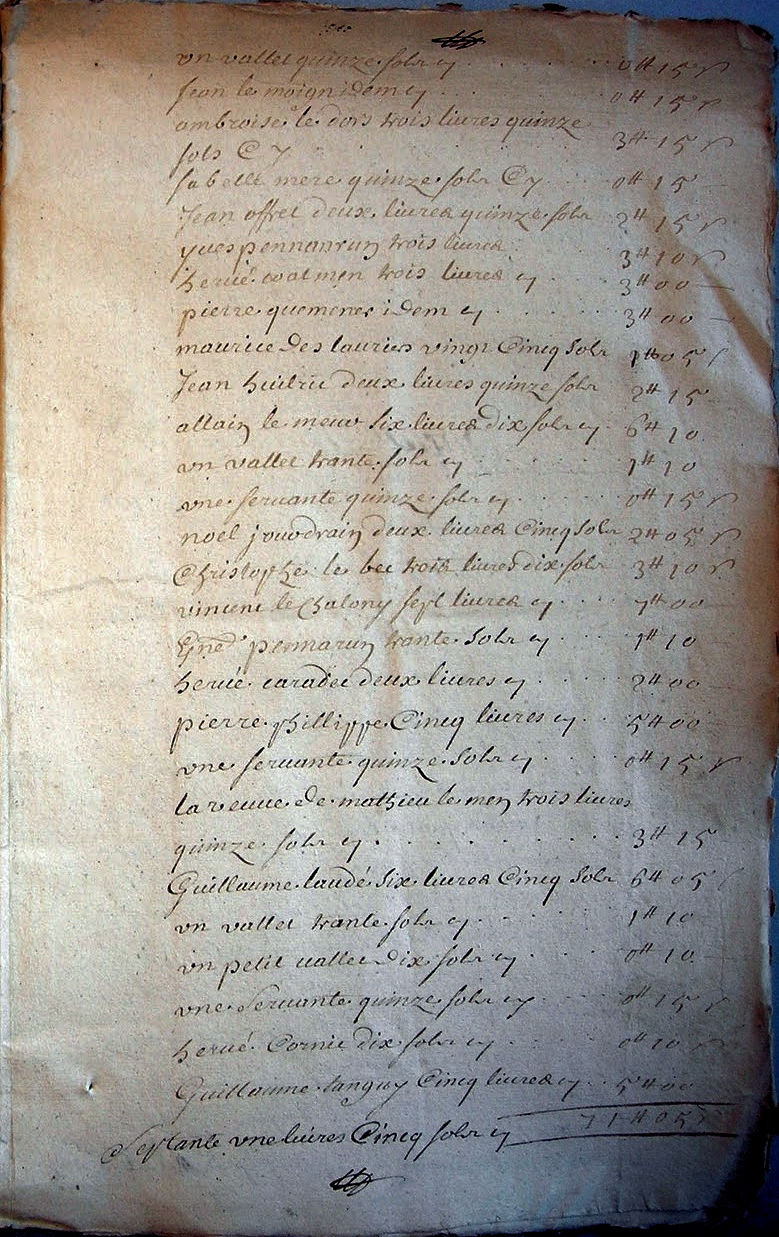 un vallet quinze sols cy 0tt 15 s
Jean le moign idem cy 0tt 15 s
ambroise le dors trois livres quinze
sols Cy 3tt 15 s
sa belle mere quinze sols Cy 0tt 15
Jean offret deux livres quinze sols 2tt 15 s
yves pennanrun trois livres 3tt 10 s
hervé coatmen trois livres cy 3tt 00
pierre quemener idem cy 3tt 00
maurice des lauriers vingt Cinq sols 1tt 05 s
Jean deux livres quinze sols 2tt 15
allain le meur six livres dix sols cy 6tt 10
un vallet trante sols cy 1tt 10
une servante quinze sols cy 0tt 15 s
noel jouvdrain deux livres Cinq sols 2tt 05 s
Christophe le bec trois livres dix sols 3tt 10 s
vincent le Chalony sept livres cy 7tt 00
penmarun trante sols cy 1tt 10
hervé caradec deux livres cy 2tt 00
pierre phillippe Cinq livres cy 5tt 00
une servante quinze sols cy 0tt 15 s
la veuve de mathieu le men trois livres
quinze sols cy 3tt 15
Guillaume laudé six livres Cinq sols 6tt 05
un vallet trante sols cy 1tt 10
un petit vallet dix sols cy 0tt 10
une servante quinze sols cy 0tt 15 s
hervé Cornic dix sols cy 0tt 10
Guillaume tanguy Cinq livres cy 5tt 00
Septante une livres Cinq sols cy 71tt 05 s